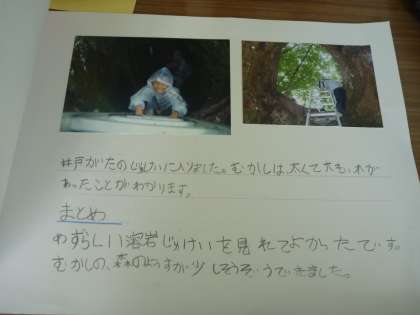 井戸がたのじゅけいに入りました。むかしは、太くて大きい木が
あったことがわかります。
まとめ
めずらしい溶岩じゅけいを見れてよかったです。
むかしの、森のようすが少しそうぞうできました。